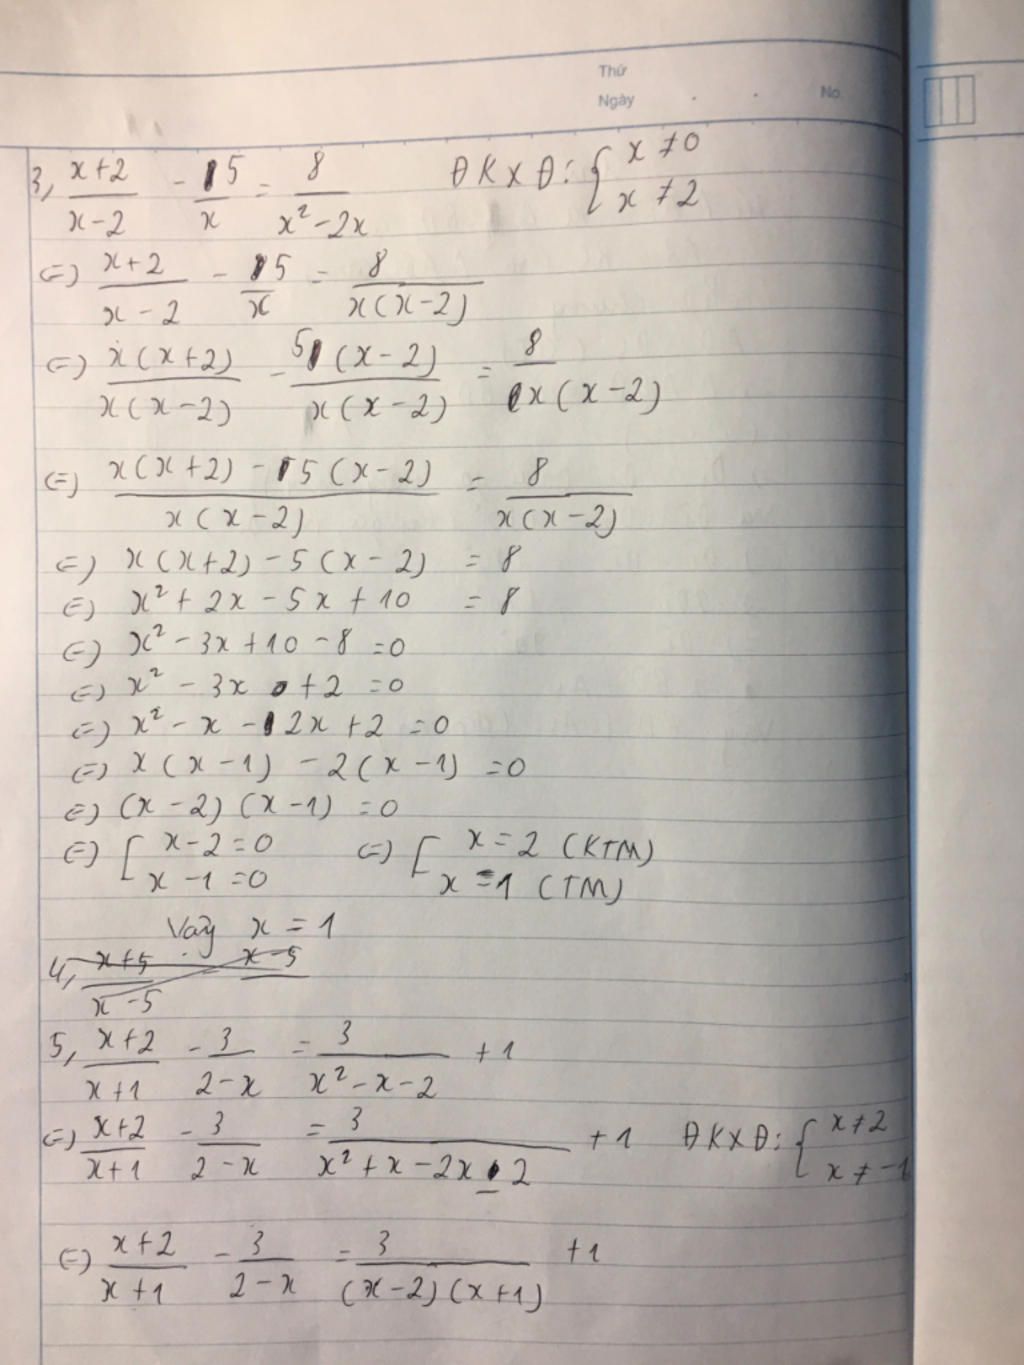 Thứ
Ngày . . No
3, (x+2)/(x-2) - 5/x = 8/(x²-2x) ĐKXĐ: { x ≠ 0 ; x ≠ 2
(=) (x+2)/(x-2) - 5/x = 8/(x(x-2))
(=) x(x+2)/(x(x-2)) - 5(x-2)/(x(x-2)) = 8/(x(x-2))
(=) (x(x+2) - 5(x-2))/(x(x-2)) = 8/(x(x-2))
(=) x(x+2) - 5(x-2) = 8
(=) x² + 2x - 5x + 10 = 8
(=) x² - 3x + 10 - 8 = 0
(=) x² - 3x + 2 = 0
(=) x² - x - 2x + 2 = 0
(=) x(x-1) - 2(x-1) = 0
(=) (x-2)(x-1) = 0
(=) [ x-2=0 ; x-1=0 (=) [ x=2 (KTM) ; x=1 (TM)
Vậy x = 1
4, (x+5)/(x-5) x-5
5, (x+2)/(x+1) - 3/(2-x) = 3/(x²-x-2) + 1
(=) (x+2)/(x+1) - 3/(2-x) = 3/(x²+x-2x-2) + 1 ĐKXĐ: { x ≠ 2 ; x ≠ -1
(=) (x+2)/(x+1) - 3/(2-x) = 3/((x-2)(x+1)) + 1